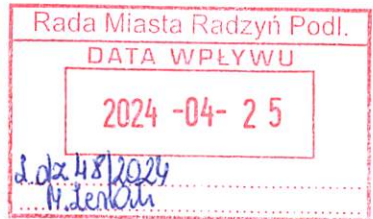 Rada Miasta Radzyń Podl.
DATA WPŁYWU
2024 -04- 25
L.dz 48/2024